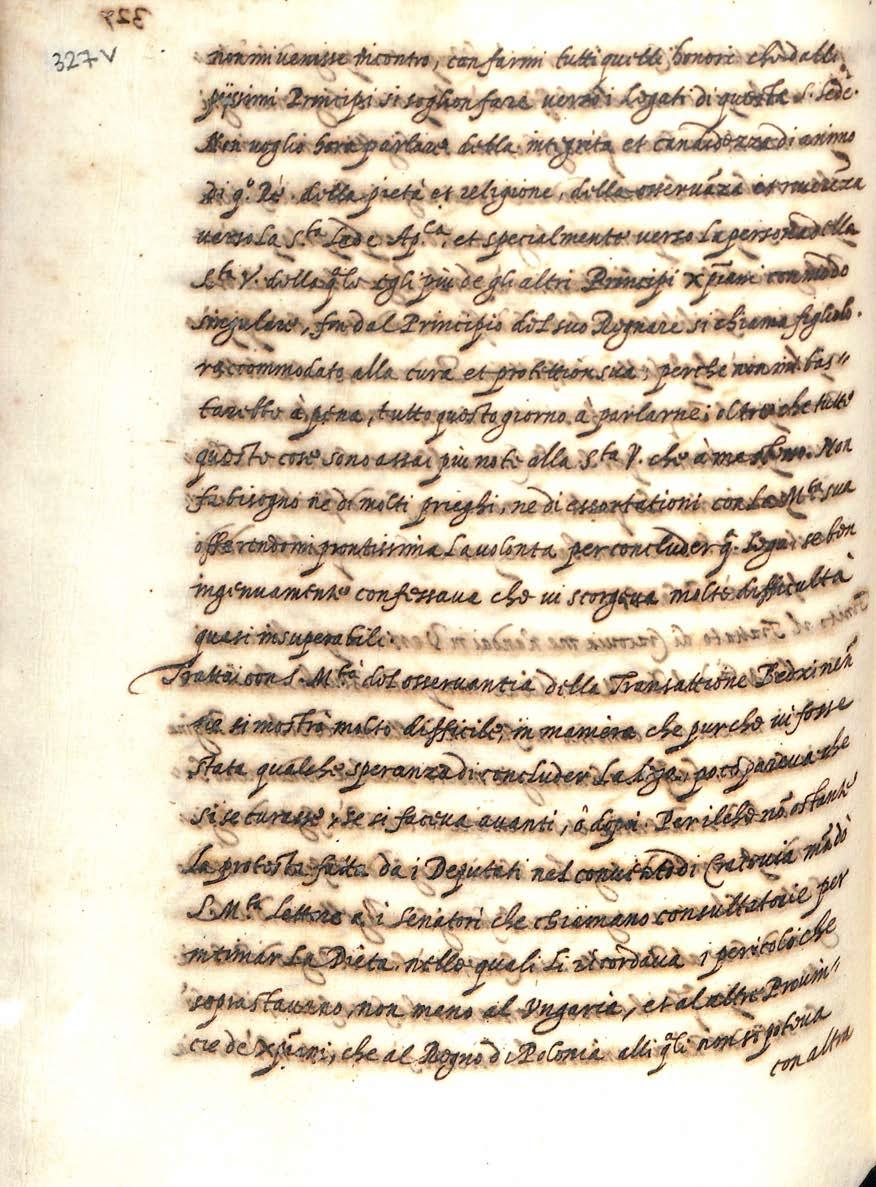 327 v
non mi venisse incontro, con farmi tutti quelli honori che dalli
pijssimi Principi si soglion fare verso i Legati di questa S. Sede.
Non voglio hora parlare della integrità et candidezza di animo
di q.º Rè, della pietà et religione, della osservãza et reverẽza
verso la S.ta Sede Ap.ca, et specialmente verso la persona della
S.tà V. della q̃le egli più de gli altri Principi xp̃iani con modo
singulare, fin dal Principio del suo Regnare si chiama figliolo.
raccommodato alla cura et protettion sua; perche non mi bas=
tarebbe à pena, tutto questo giorno à parlarne; oltre che tutte
queste cose sono assai più note alla S.tà V. che à me Non
fa bisogno ne di molti prieghi, ne di essortationi con la M.tà sua
offerendomi prontissima la volontà per concluder q.ª Lega, se ben
ingenuamente confessava che vi scorgeva molte difficultà
quasi insuperabili.
Trattai con S. M.tà del osservantia della Transattione
ne si mostrò molto difficile, in maniera che purche vi fosse
stata qualche speranza di concluder la liga, poco pareva che
si se curasse, se si faceva avanti, ò dopoi. Perilche nõ ostante
la protesta fatta da i Deputati nel conventо di Cracovia mãdò
S. M.tà lettere a i Senatori che chiamano consultatorie per
intimar la Dieta, nelle quali li ricordava i pericoli che
soprastavano, non meno al Ungaria, et al altre Provin=
cie de xp̃iani, che al Regno di Polonia alli q̃li non si poteva
con altra